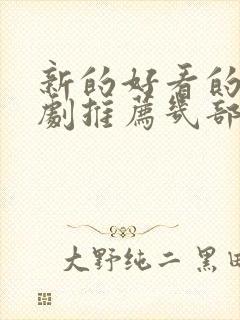 新的好看的
劇推薦幾部
大野纯二 黑田